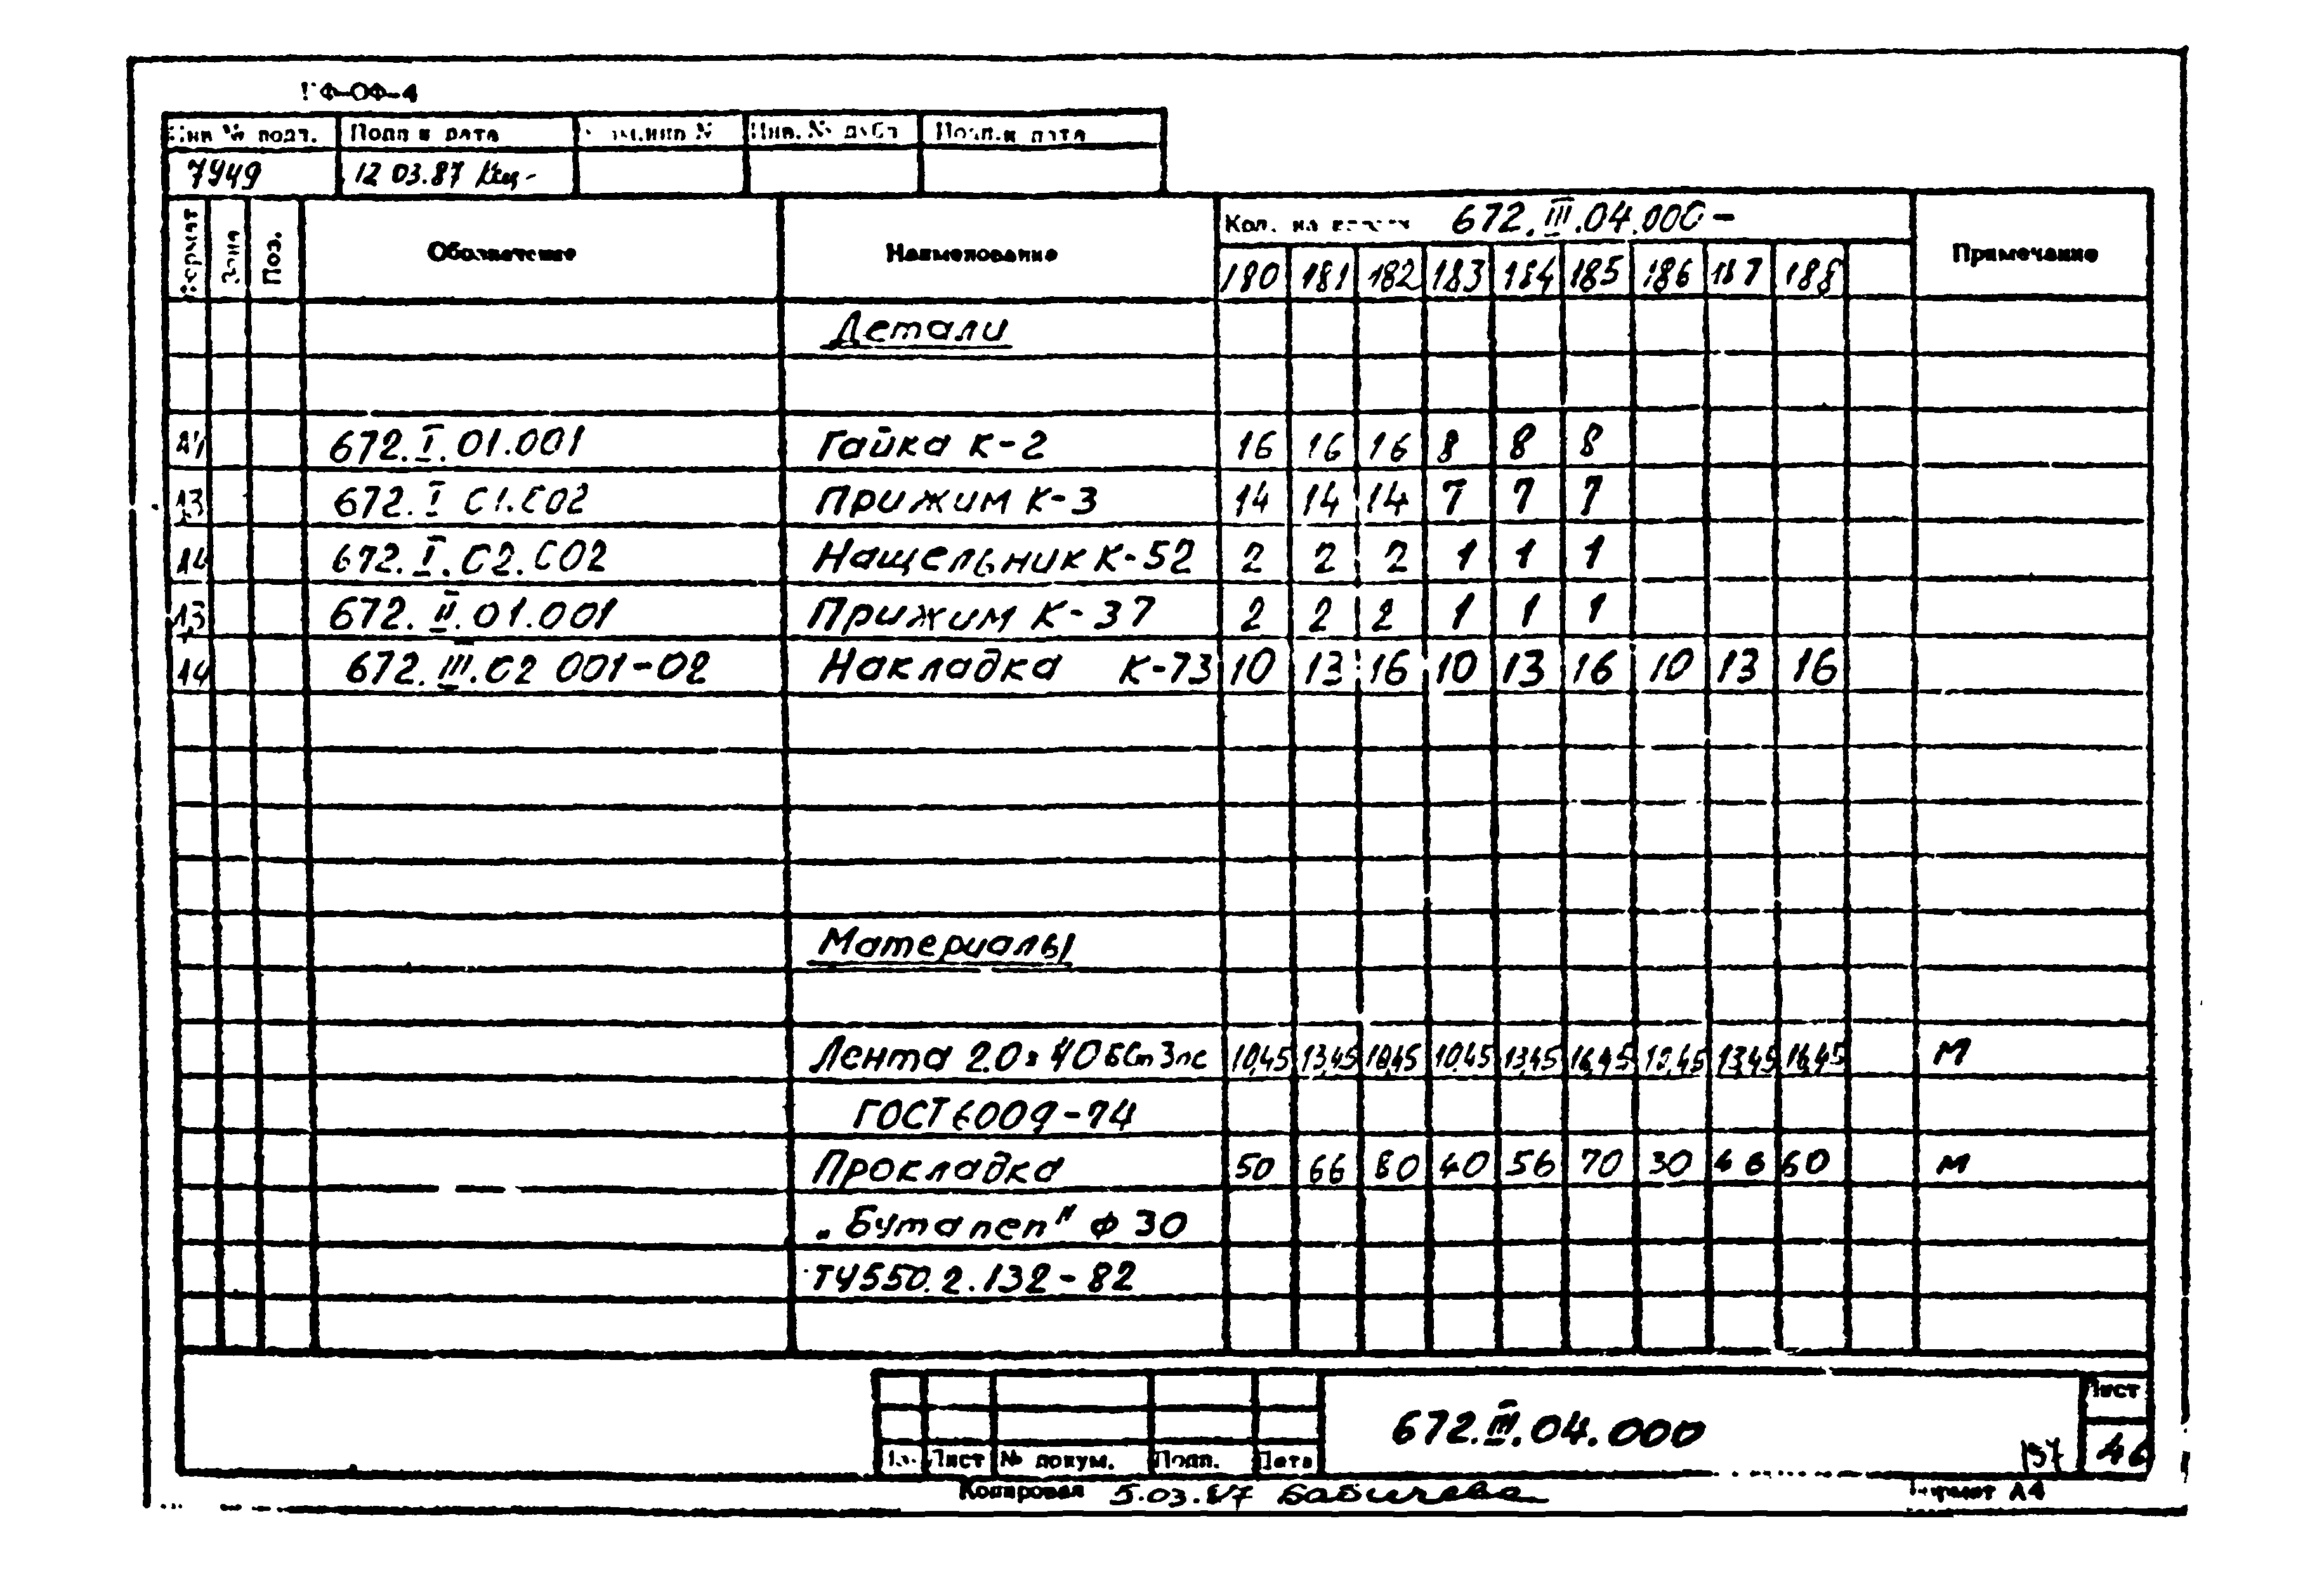 ПФ-ОФ-4
Инв № подл. Подп и дата Взам.инв N Инв. № дубл Подп.и дата
7949 12 03.87
Формат Зона Поз. Обозначение Наименование Кол. на 672.III.04.000- Примечание
180 181 182 183 184 185 186 187 188
Детали
А4 672.I.01.001 Гайка К-2 16 16 16 8 8 8
А3 672.I 01.002 Прижим К-3 14 14 14 7 7 7
А4 672.I.02.002 Нащельник К-52 2 2 2 1 1 1
А3 672.II.01.001 Прижим К-37 2 2 2 1 1 1
А4 672.III.02 001-02 Накладка К-73 10 13 16 10 13 16 10 13 16
Материалы
Лента 2.0х40 БСт3пс 10,45 13,45 16,45 10,45 13,45 16,45 10,45 13,45 16,45 м
ГОСТ 6009-74
Прокладка 50 66 80 40 56 70 30 46 60 м
„Бутапеп" ф 30
ТУ550.2.132-82
672.III.04.000 Лист
Изм Лист № докум. Подп. Дата 137 46
Копировал 5.03.87 Бабичева Формат А4